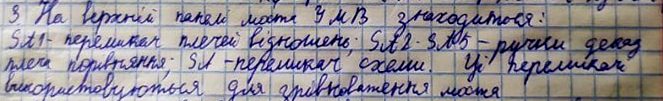 3. На верхній панелі моста УМВ знаходиться:
SA1 - перемикач плечей відношень; SA2-SA5 - ручки декад
плеча порівняння; SA - перемикач схеми. Ці перемикачі
використовуються для зрівноваження моста